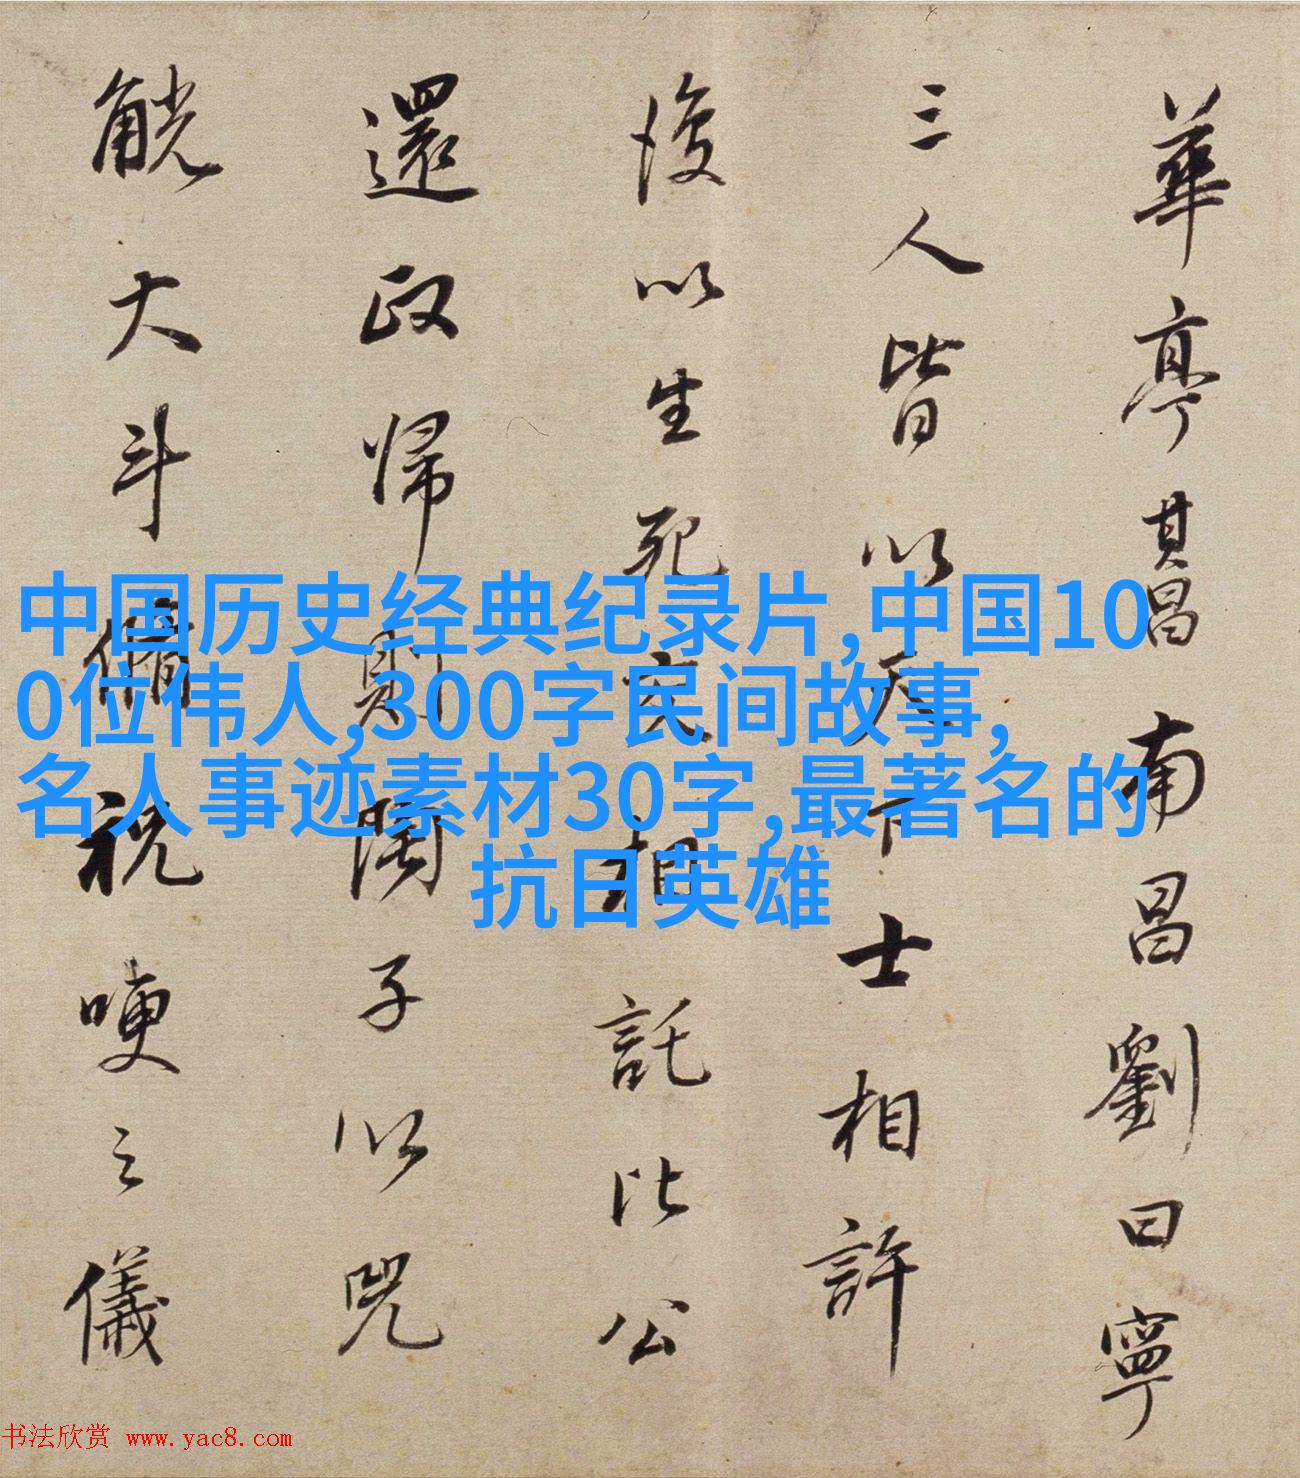 華亭其昌南昌劉曰寧
三人皆以天下士相許
後以生死交相託比公
還政歸則陶子以兕
觥大斗脩祝哽之儀
中国历史经典纪录片,中国10
0位伟人,300字民间故事,
名人事迹素材30字,最著名的
抗日英雄
书法欣赏 www.yac8.com